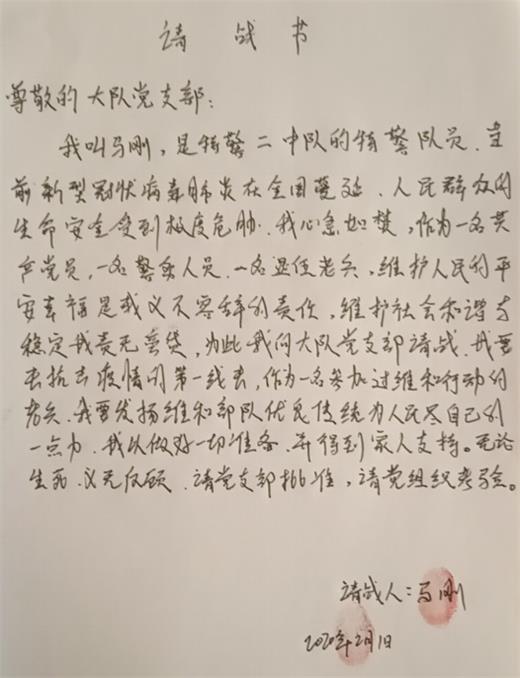 请战书
尊敬的大队党支部:
我叫马刚,是特警二中队的特警队员.当
前新型冠状病毒肺炎在全国蔓延.人民群众的
生命安全受到极度危胁.我心急如焚,作为一名共
产党员,一名警务人员.一名退伍老兵,维护人民的平
安幸福是我义不容辞的责任,维护社会和谐与
稳定我责无旁贷,为此我向大队党支部请战.我要
去抗击疫情的第一线去,作为一名参加过维和行动的
老兵.我要发扬维和部队优良传统为人民尽自己的
一点力.我以做好一切准备.并得到家人支持。无论
生死.义无反顾.请党支部批准,请党组织考验。
请战人:马刚
2020年2月1日